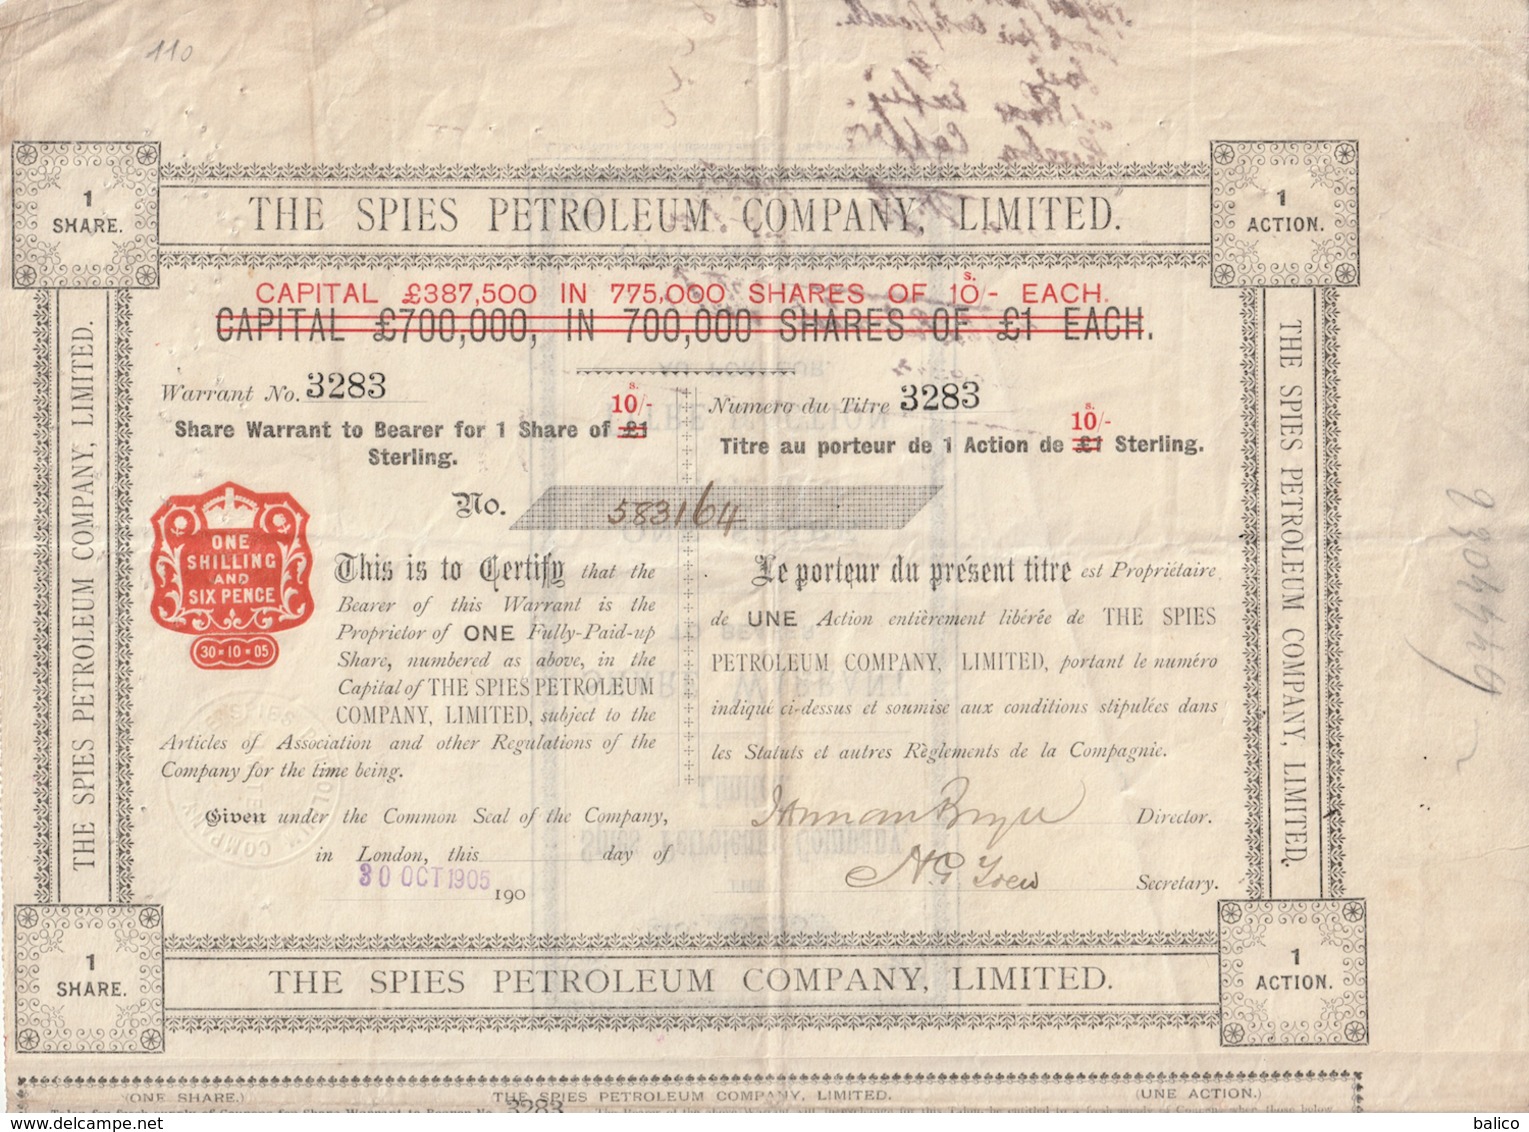 110
1
SHARE.
THE SPIES PETROLEUM COMPANY, LIMITED.
1
ACTION.
CAPITAL £387,500 IN 775,000 SHARES OF 10s/- EACH.
CAPITAL £700,000, IN 700,000 SHARES OF £1 EACH.
Warrant No. 3283
10s/-
Share Warrant to Bearer for 1 Share of £1
Sterling.
Numero du Titre 3283
10s/-
Titre au porteur de 1 Action de £1 Sterling.
No. 583164
ONE
SHILLING
AND
SIX PENCE
30·10·05
This is to Certify that the
Bearer of this Warrant is the
Proprietor of ONE Fully-Paid-up
Share, numbered as above, in the
Capital of THE SPIES PETROLEUM
COMPANY, LIMITED, subject to the
Articles of Association and other Regulations of the
Company for the time being.
Le porteur du présent titre est Propriétaire
de UNE Action entièrement libérée de THE SPIES
PETROLEUM COMPANY, LIMITED, portant le numéro
indiqué ci-dessus et soumise aux conditions stipulées dans
les Statuts et autres Règlements de la Compagnie.
Given under the Common Seal of the Company,
in London, this day of
30 OCT 1905
190
Director.
Secretary.
THE SPIES PETROLEUM COMPANY, LIMITED.
THE SPIES PETROLEUM COMPANY, LIMITED.
1
SHARE.
THE SPIES PETROLEUM COMPANY, LIMITED.
1
ACTION.
(ONE SHARE.)
THE SPIES PETROLEUM COMPANY, LIMITED.
(UNE ACTION.)
3283
www.delcampe.net
balico